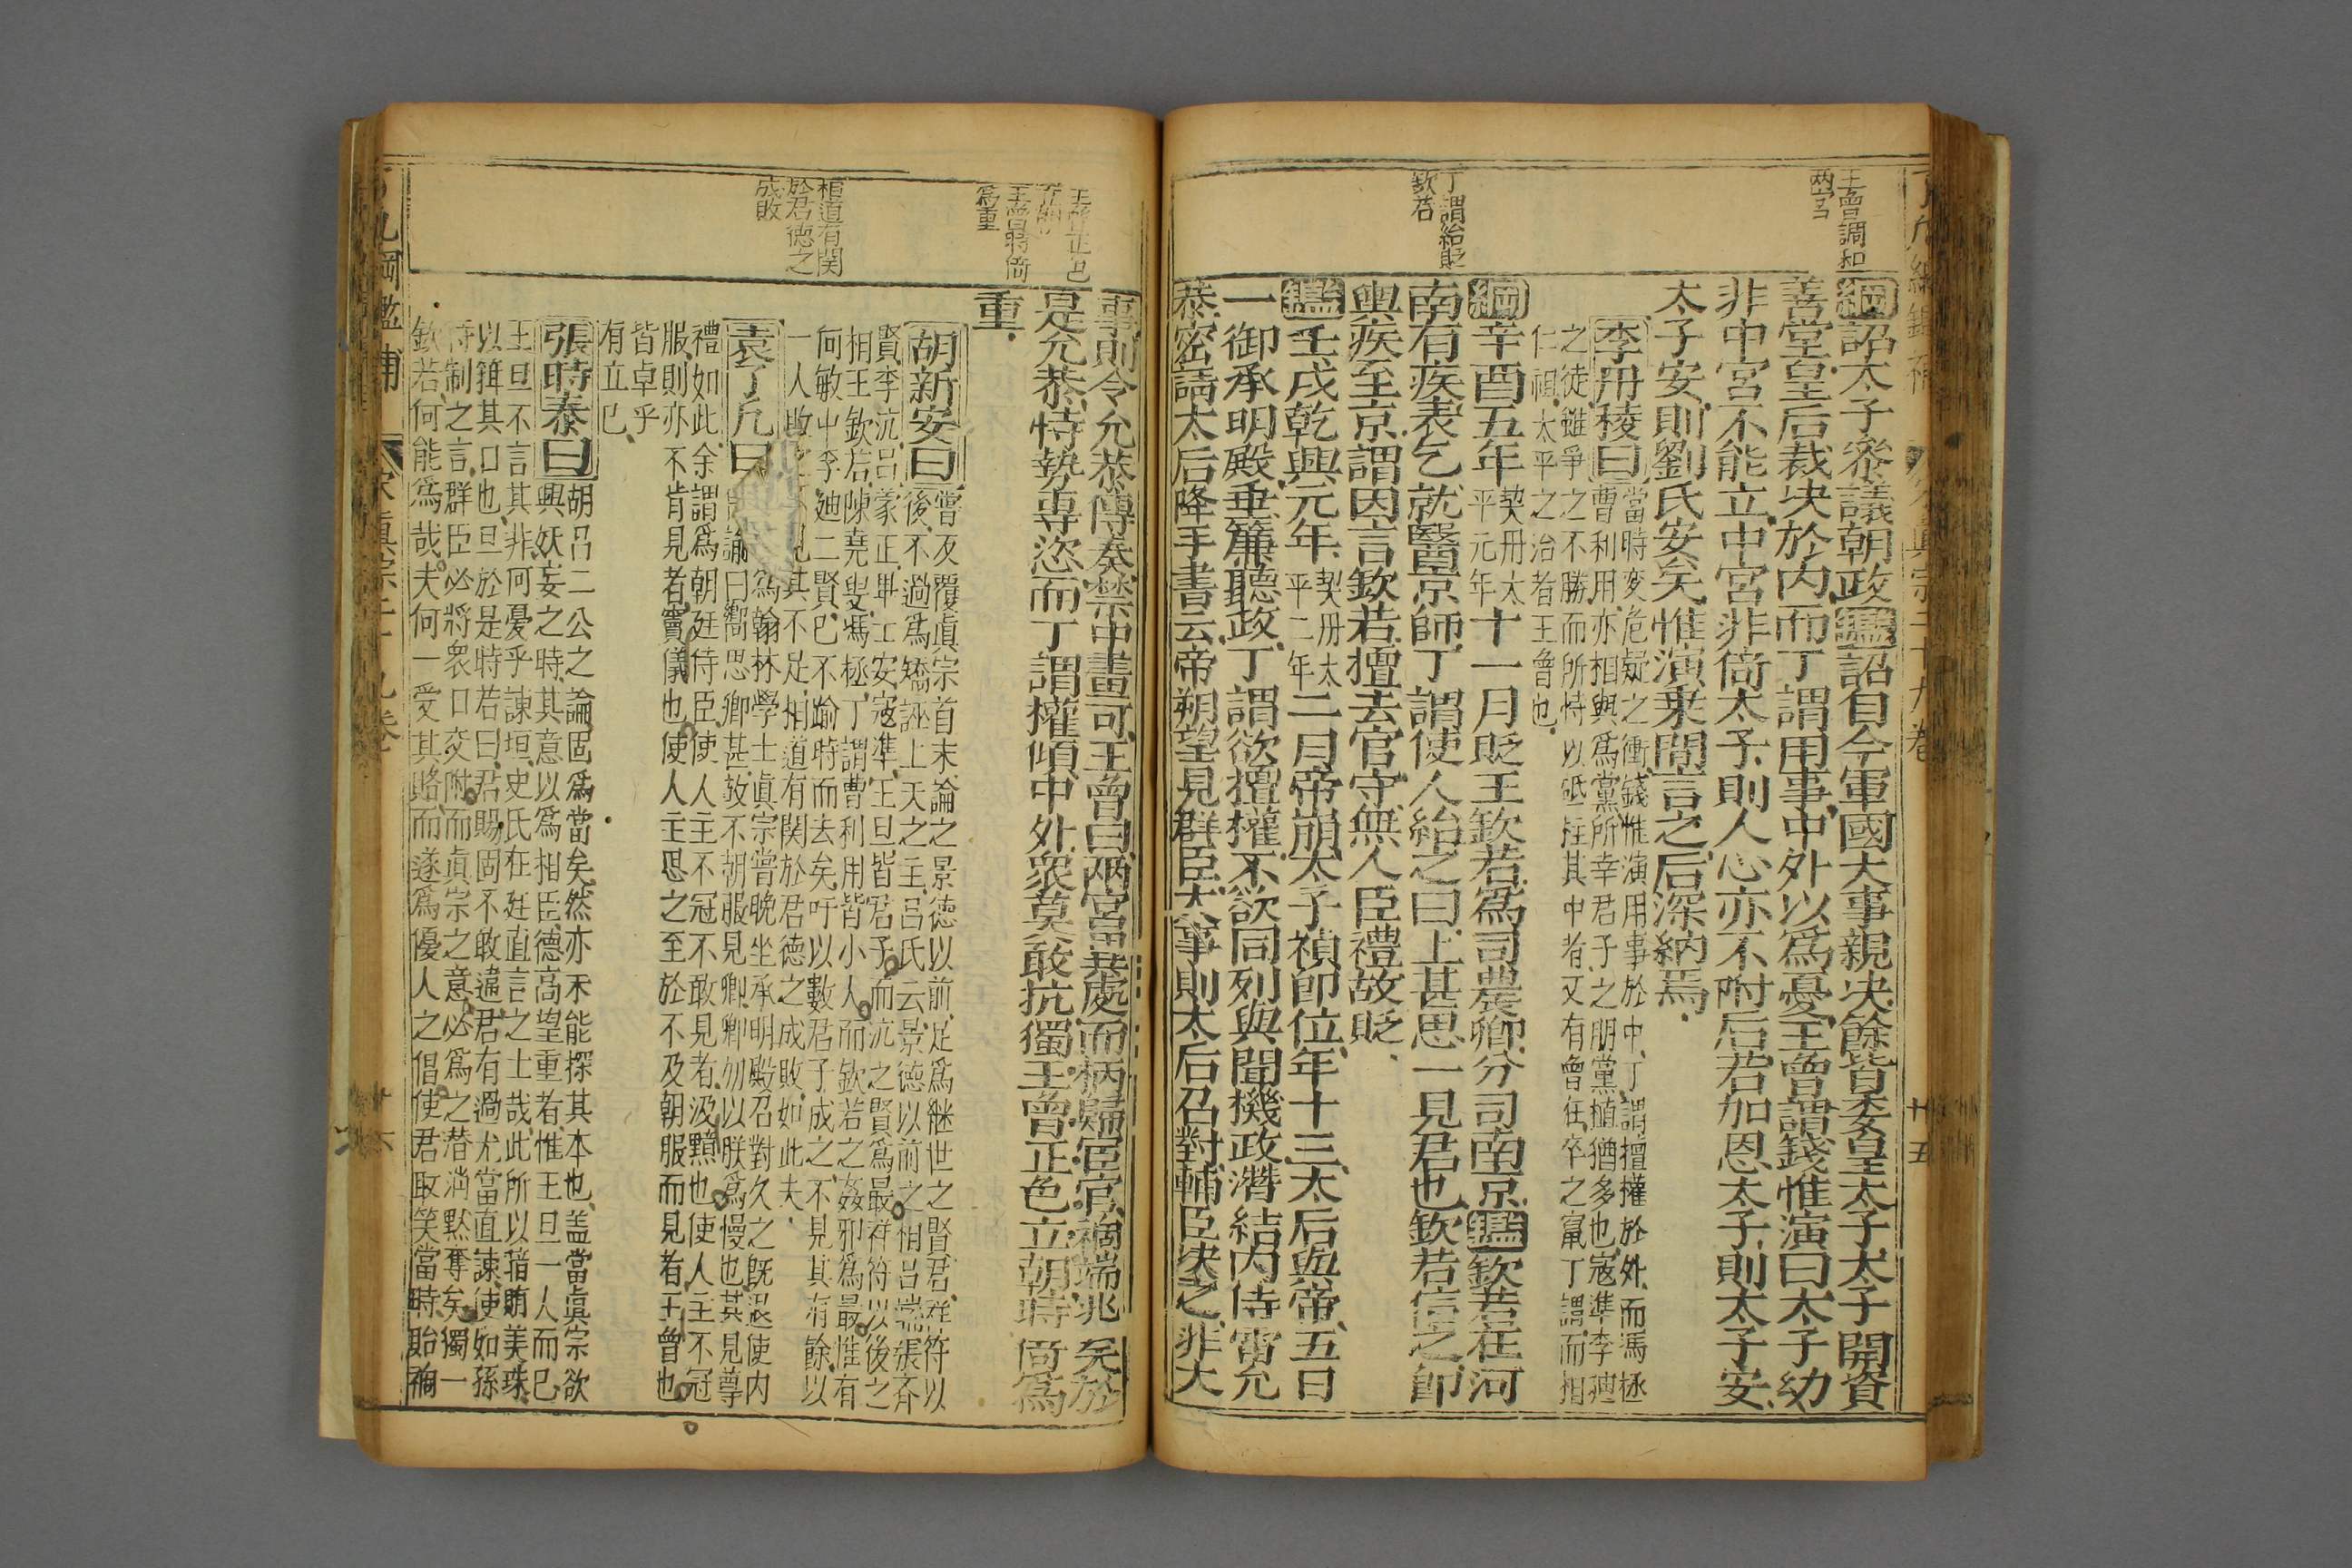 王曾調和
两宮
丁謂紿貶
欽若
綱詔太子叅議朝政鑑詔自今軍國大事親决餘皆委皇太子太子開資
善堂皇后裁决於内而丁謂用事中外以爲憂王曾謂錢惟演曰太子幼
非中宮不能立中宮非倚太子則人心亦不附后若加恩太子則太子安
太子安則劉氏安矣惟演乗間言之后深納焉
李冄稜曰當時変危疑之衝錢惟演用事於中丁謂擅權於外而馮拯
曹利用亦相與爲黨所幸君子之朋黨植猶多也寇準李廸
之徒雖爭之不勝而所恃以砥柱其中者又有曾在卒之竄丁謂而相
仁祖太平之治者王曾也
綱辛酉五年契丹太平元年十一月貶王欽若爲司農卿分司南京鑑欽若在河
南有疾表乞就醫京師丁謂使人紿之曰上甚思一見君也欽若信之卽
輿疾至京謂因言欽若擅去官守無人臣禮故貶
鑑壬戌乾興元年契丹太平二年二月帝崩太子禎卽位年十三太后與帝五日
一御承明殿垂簾聽政丁謂欲擅權不欲同列與聞機政潛結内侍雷允
恭密請太后降手書云帝朔望見群臣大事則太后召對輔臣决之非大
王曾正色
王曾時倚
爲重
相道有関
於君德之
成敗
事則令允恭傳奏禁中畫可王曾曰兩宮異處而柄歸宦官禍端兆矣於
是允恭恃勢専恣而丁謂權傾中外衆莫敢抗獨王曾正色立朝時倚爲
重
胡新安曰嘗反覆眞宗首末論之景德以前足爲継世之賢君祥符以
後不過爲矯誣上天之主呂氏云景德以前之相呂端張齊
賢李沆呂蒙正畢士安寇準王旦皆君子而沆之賢爲最祥符以後之
相王欽若陳堯叟馮拯丁謂曹利用皆小人而欽若之姦邪爲最惟有
向敏中李廸二賢已不踰時而去矣吁以數君子成之不見其有餘以
一人敗之見其不足相道有関於君德之成敗如此夫
袁了凡曰爲翰林學士眞宗嘗晩坐承明殿召對久之旣退使内
諭曰嚮思卿甚故不朝服見卿卿勿以朕爲慢也其見尊
禮如此余謂爲朝廷侍臣使人主不冠不敢見者汲黯也使人主不冠
服則亦不肯見者竇儀也使人主思之至於不及朝服而見者王曾也
皆卓乎
有立已
張時泰曰胡呂二公之論固爲當矣然亦未能探其本也盖當眞宗欲
興妖妄之時其意以爲相臣德高望重者惟王旦一人而已
王旦不言其非何憂乎諫垣史氏在廷直言之士哉此所以箝賄美珠
以箝其口也旦於是時若曰君賜固不敢違君有過尤當直諫使如孫
待制之言群臣必將衆口交附而眞宗之意必爲之潛消黙奪矣獨一
欽若何能爲哉夫何一受其賂而遂爲優人之倡使君取笑當時貽禍